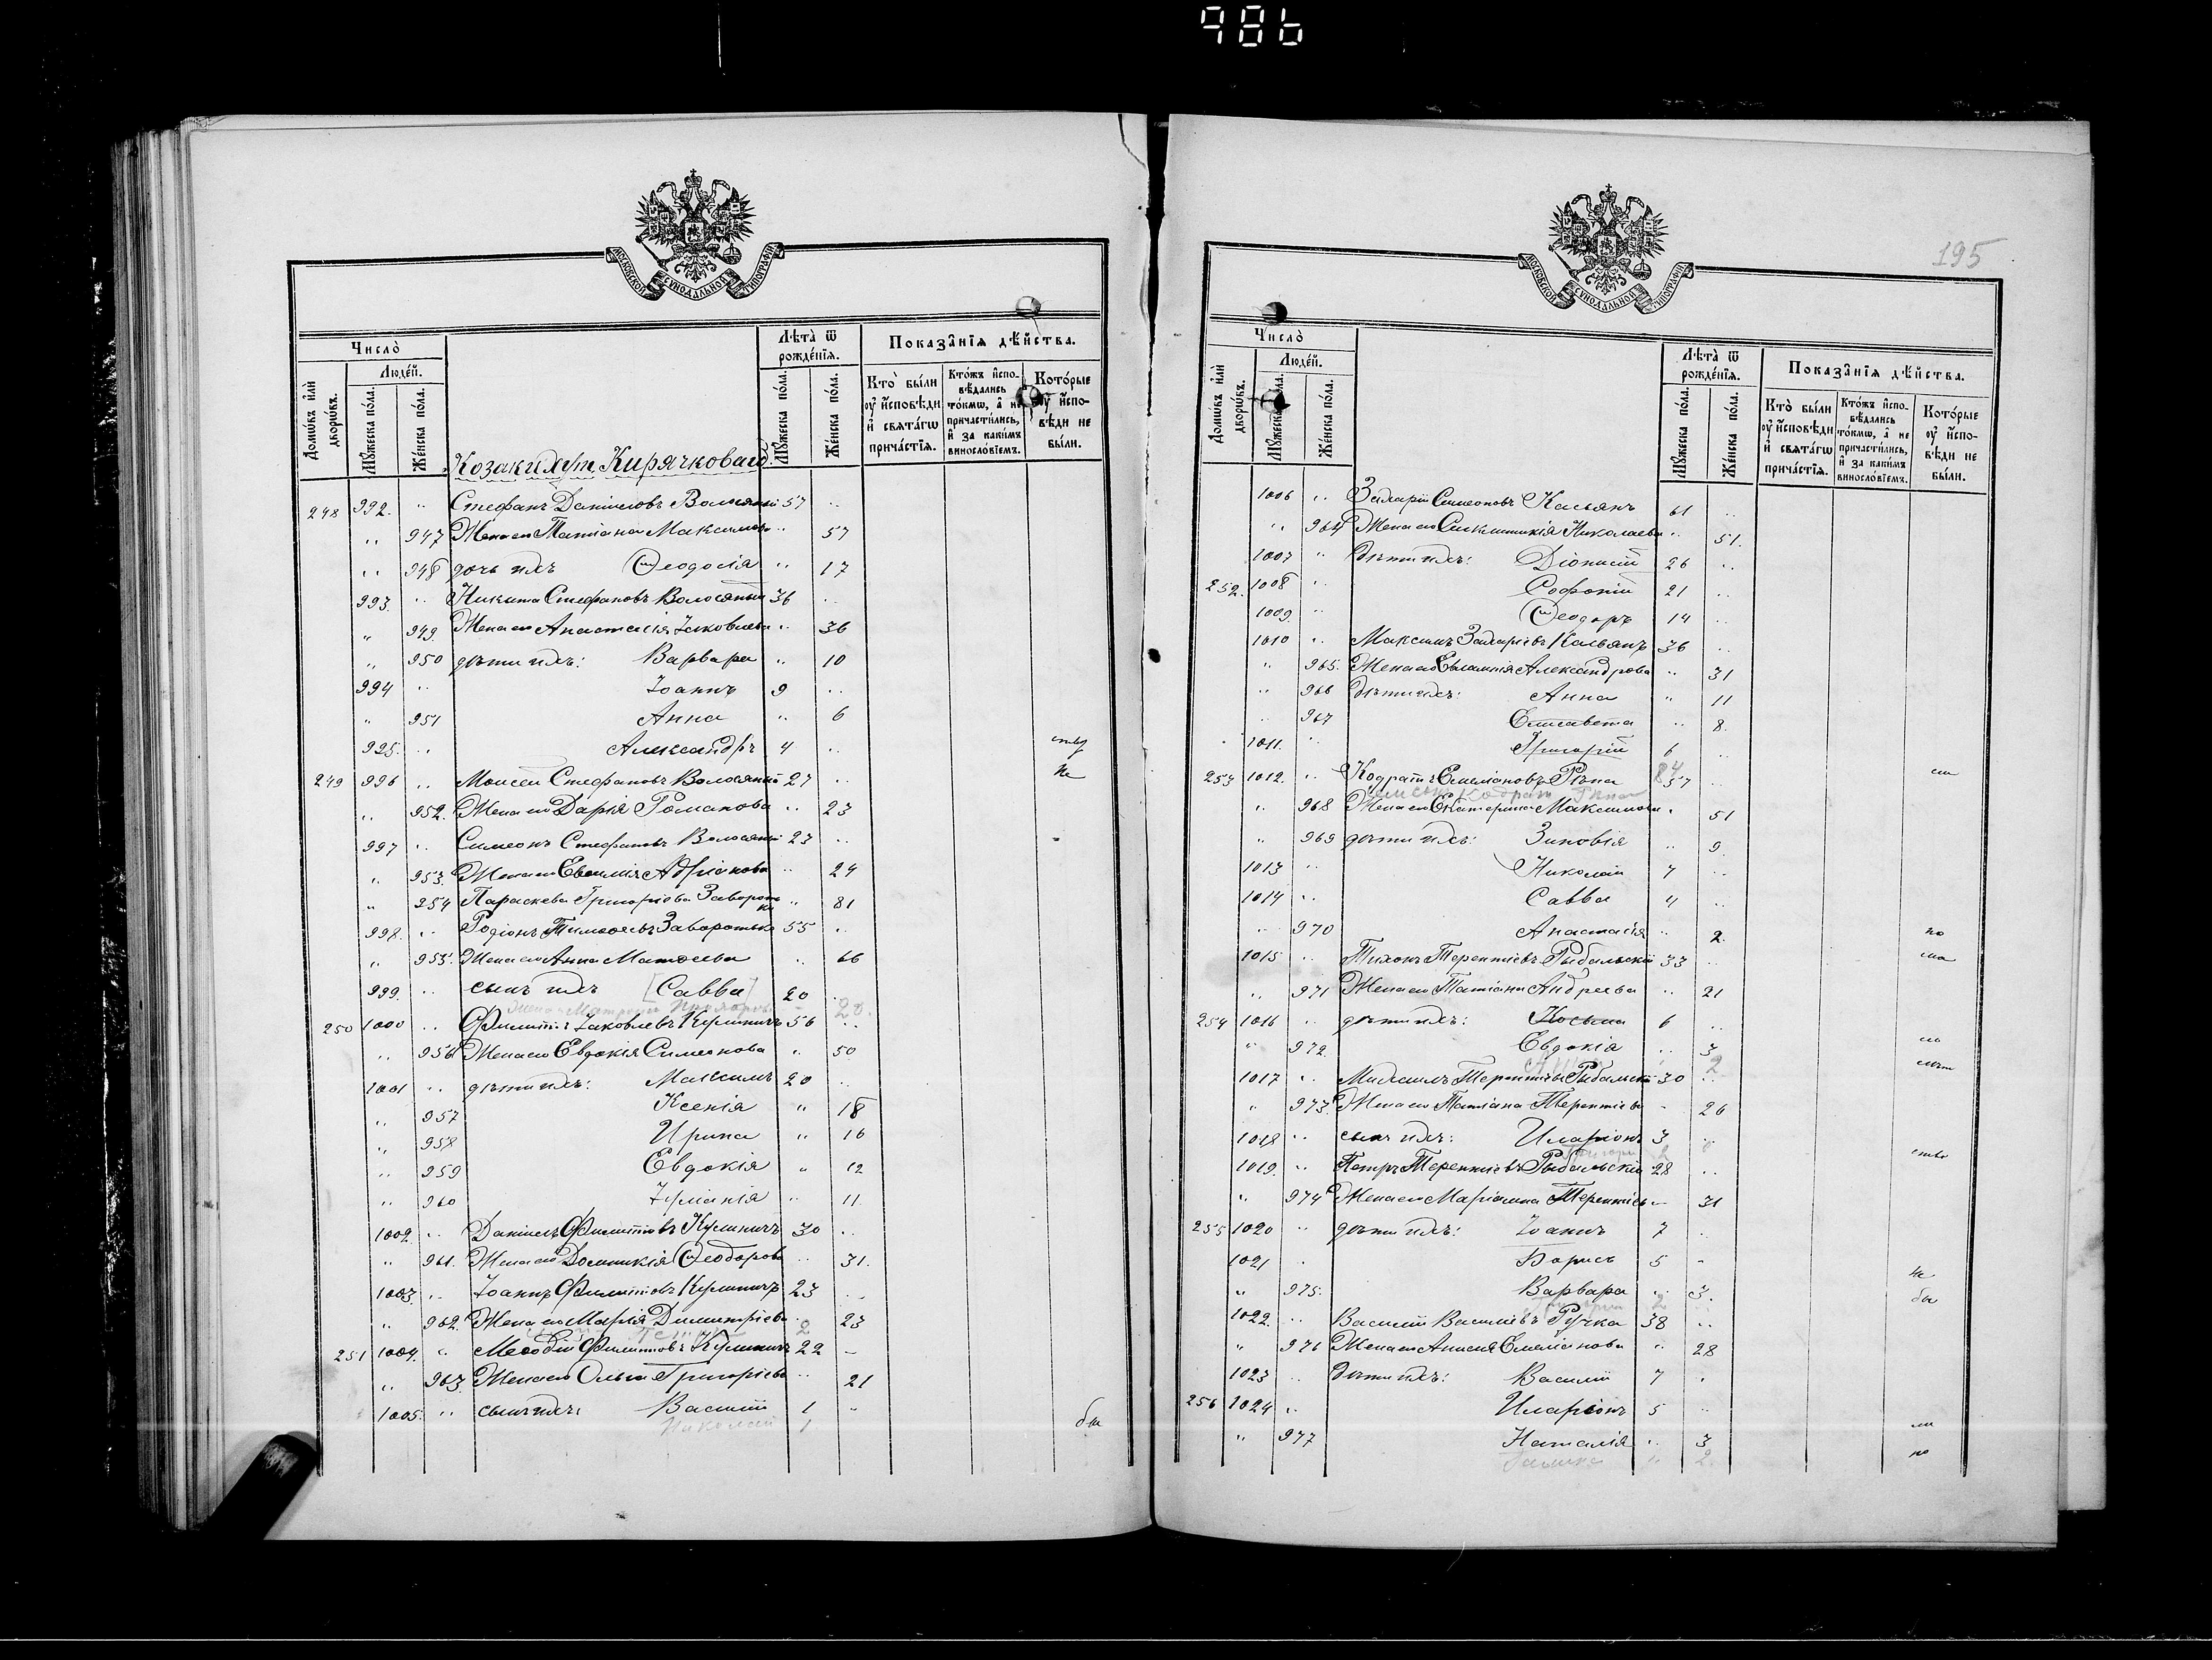 986
МОСКОВСКОЙ СѴНОДАЛЬНОЙ ТИПОГРАФІИ
Число̀
Людей.
Домѡвъ илѝ дворѡвъ.
Мꙋжеска пола.
Женска пола.
Лѣта̀ ѿ рожденїѧ.
Мꙋжеска пола.
Женска пола.
Показанїѧ дѣйства.
Кто̀ были оу҆ исповѣди и свѧтагѡ причастїѧ.
Ктожъ исповѣдались токмѡ, а не причастились, и за какимъ винословїемъ.
Которые оу҆ исповѣди не были.
Козаки хут. Кирячковаго
248 992. " Стефанъ Даниловъ Волосяный 57 "
" 947 Жена его Татіана Максимова " 57
" 948 дочь ихъ Ѳеодосія " 17
993. " Никита Стефановъ Волосяный 36 "
" 949 Жена его Анастасія Іаковлева " 36
" 950 дѣти ихъ: Варвара " 10
994 " Іоаннъ 9 "
" 951 Анна " 6
995. " Александръ 4 "
249 996 " Моисей Стефановъ Волосяный 27 "
" 952. Жена его Дарія Романова " 23
997 " Симеонъ Стефановъ Волосяный 23 "
" 953. Жена его Евѳимія Адріанова " 24
" 954 Параскева Григоріева Заворотько " 81
998. " Родіонъ Тимоѳеевъ Заворотько 55 "
" 955. Жена его Анна Матѳеева " 66
999. " сынъ ихъ [Савва] 20 "
жена Матрона 20.
250 1000 " Филиппъ Іаковлевъ Кулиничъ 56 "
" 956 Жена его Евдокія Симеонова " 50
1001 " дѣти ихъ: Максимъ 20 "
" 957 Ксенія " 18
" 958 Ирина " 16
" 959 Евдокія " 12
" 960 Іуліанія " 11
1002. " Даніилъ Филипповъ Кулиничъ 30 "
" 961. Жена его Домникія Ѳеодорова " 31.
1003. " Іоаннъ Филипповъ Кулиничъ 23 "
" 962. Жена его Марія Димитріева " 23
2
251 1004. " Меѳодій Филипповъ Кулиничъ 22 "
" 963 Жена его Ольга Григоріева " 21
1005. " сынъ ихъ: Василій 1 "
Николай 1
195
МОСКОВСКОЙ СѴНОДАЛЬНОЙ ТИПОГРАФІИ
Число̀
Людей.
Домѡвъ илѝ дворѡвъ.
Мꙋжеска пола.
Женска пола.
Лѣта̀ ѿ рожденїѧ.
Мꙋжеска пола.
Женска пола.
Показанїѧ дѣйства.
Кто̀ были оу҆ исповѣди и свѧтагѡ причастїѧ.
Ктожъ исповѣдались токмѡ, а не причастились, и за какимъ винословїемъ.
Которые оу҆ исповѣди не были.
1006 " Захарій Симеоновъ Касьянъ 61 "
" 964 Жена его Синклитикія Николаева " 51.
1007 " дѣти ихъ: Діонисій 26 "
252. 1008 " Софоній 21 "
1009. " Ѳеодоръ 14 "
1010 " Максимъ Захаріевъ Касьянъ 36 "
" 965. Жена его Евлампія Александрова " 31
" 966 дѣти ихъ: Анна " 11
" 967 Елисавета " 8.
1011. " Григорій 6 "
253 1012. " Кодратъ Емеліановъ Рѣпа 57 "
84
" 968 Жена его Екатерина Максимова " 51
" 969 дѣти ихъ: Зиновія " 9.
1013 " Николай 7 "
1014 " Савва 4 "
" 970 Анастасія " 2.
1015 " Тихонъ Терентіевъ Рыбальскій 33 "
" 971 Жена его Татіана Андреева " 21
254 1016 " дѣти ихъ: Косьма 6 "
" 972. Евдокія " 3
2
1017 " Михаилъ Терентіевъ Рыбальскій 30 "
" 973. Жена его Татіана Терентіева " 26
1018 " сынъ ихъ: Иларіонъ 3 "
1019. " Петръ Терентіевъ Рыбальскій 28 "
" 974 Жена его Маріамна Терентіева 31
255 1020 " дѣти ихъ: Іоаннъ 7 "
1021 " Борисъ 5 "
" 975. Варвара " 3.
1022. " Василій Василіевъ Ручка 38 "
" 976 Жена его Анисія Емеліанова " 28
1023 " дѣти ихъ: Василій 7 "
256 1024 " Иларіонъ 5 "
" 977 Наталія " 3
2.